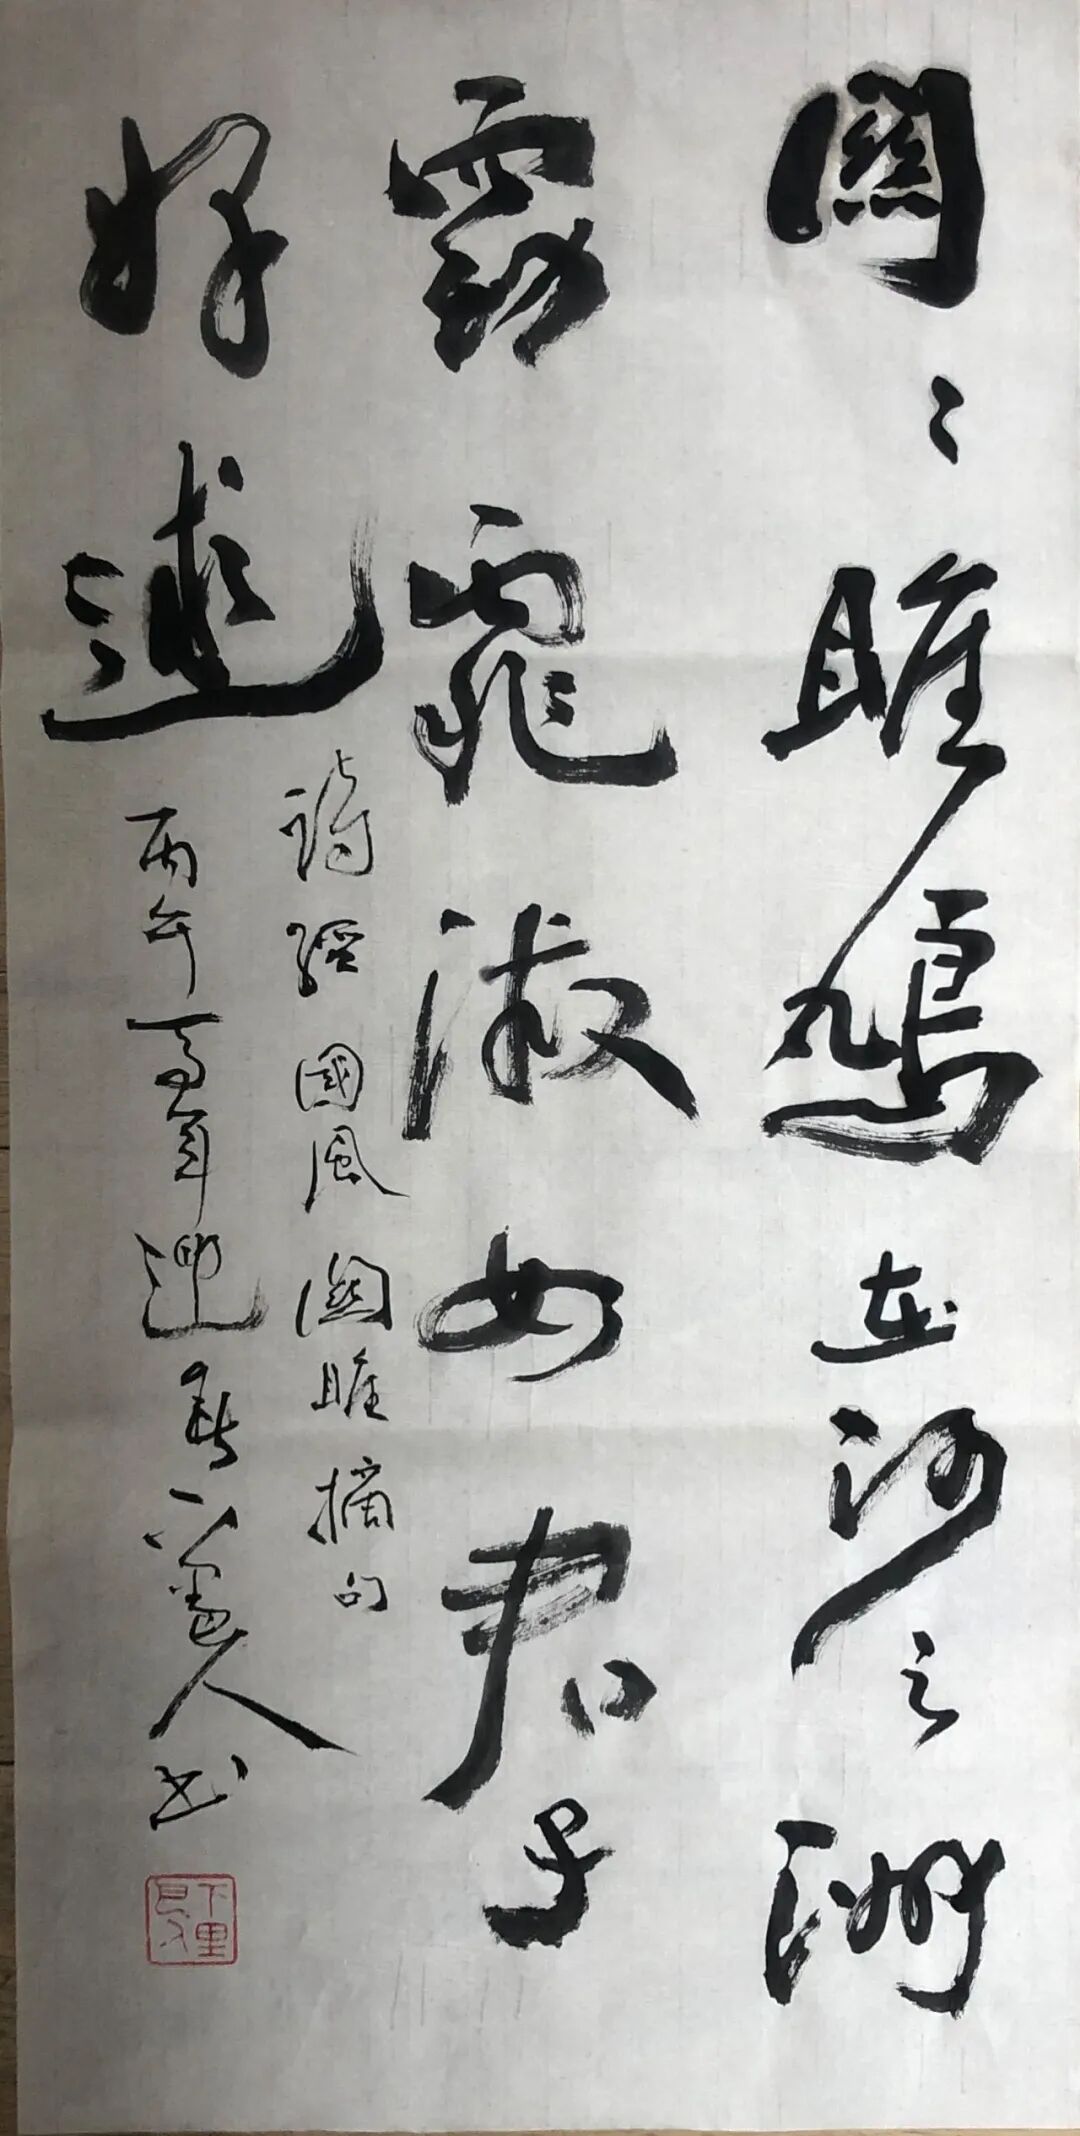 關〻雎鳩在河之洲
窈窕淑女君子
好逑
詩經國風關雎摘句
丙午年迎春人书
下里巴人